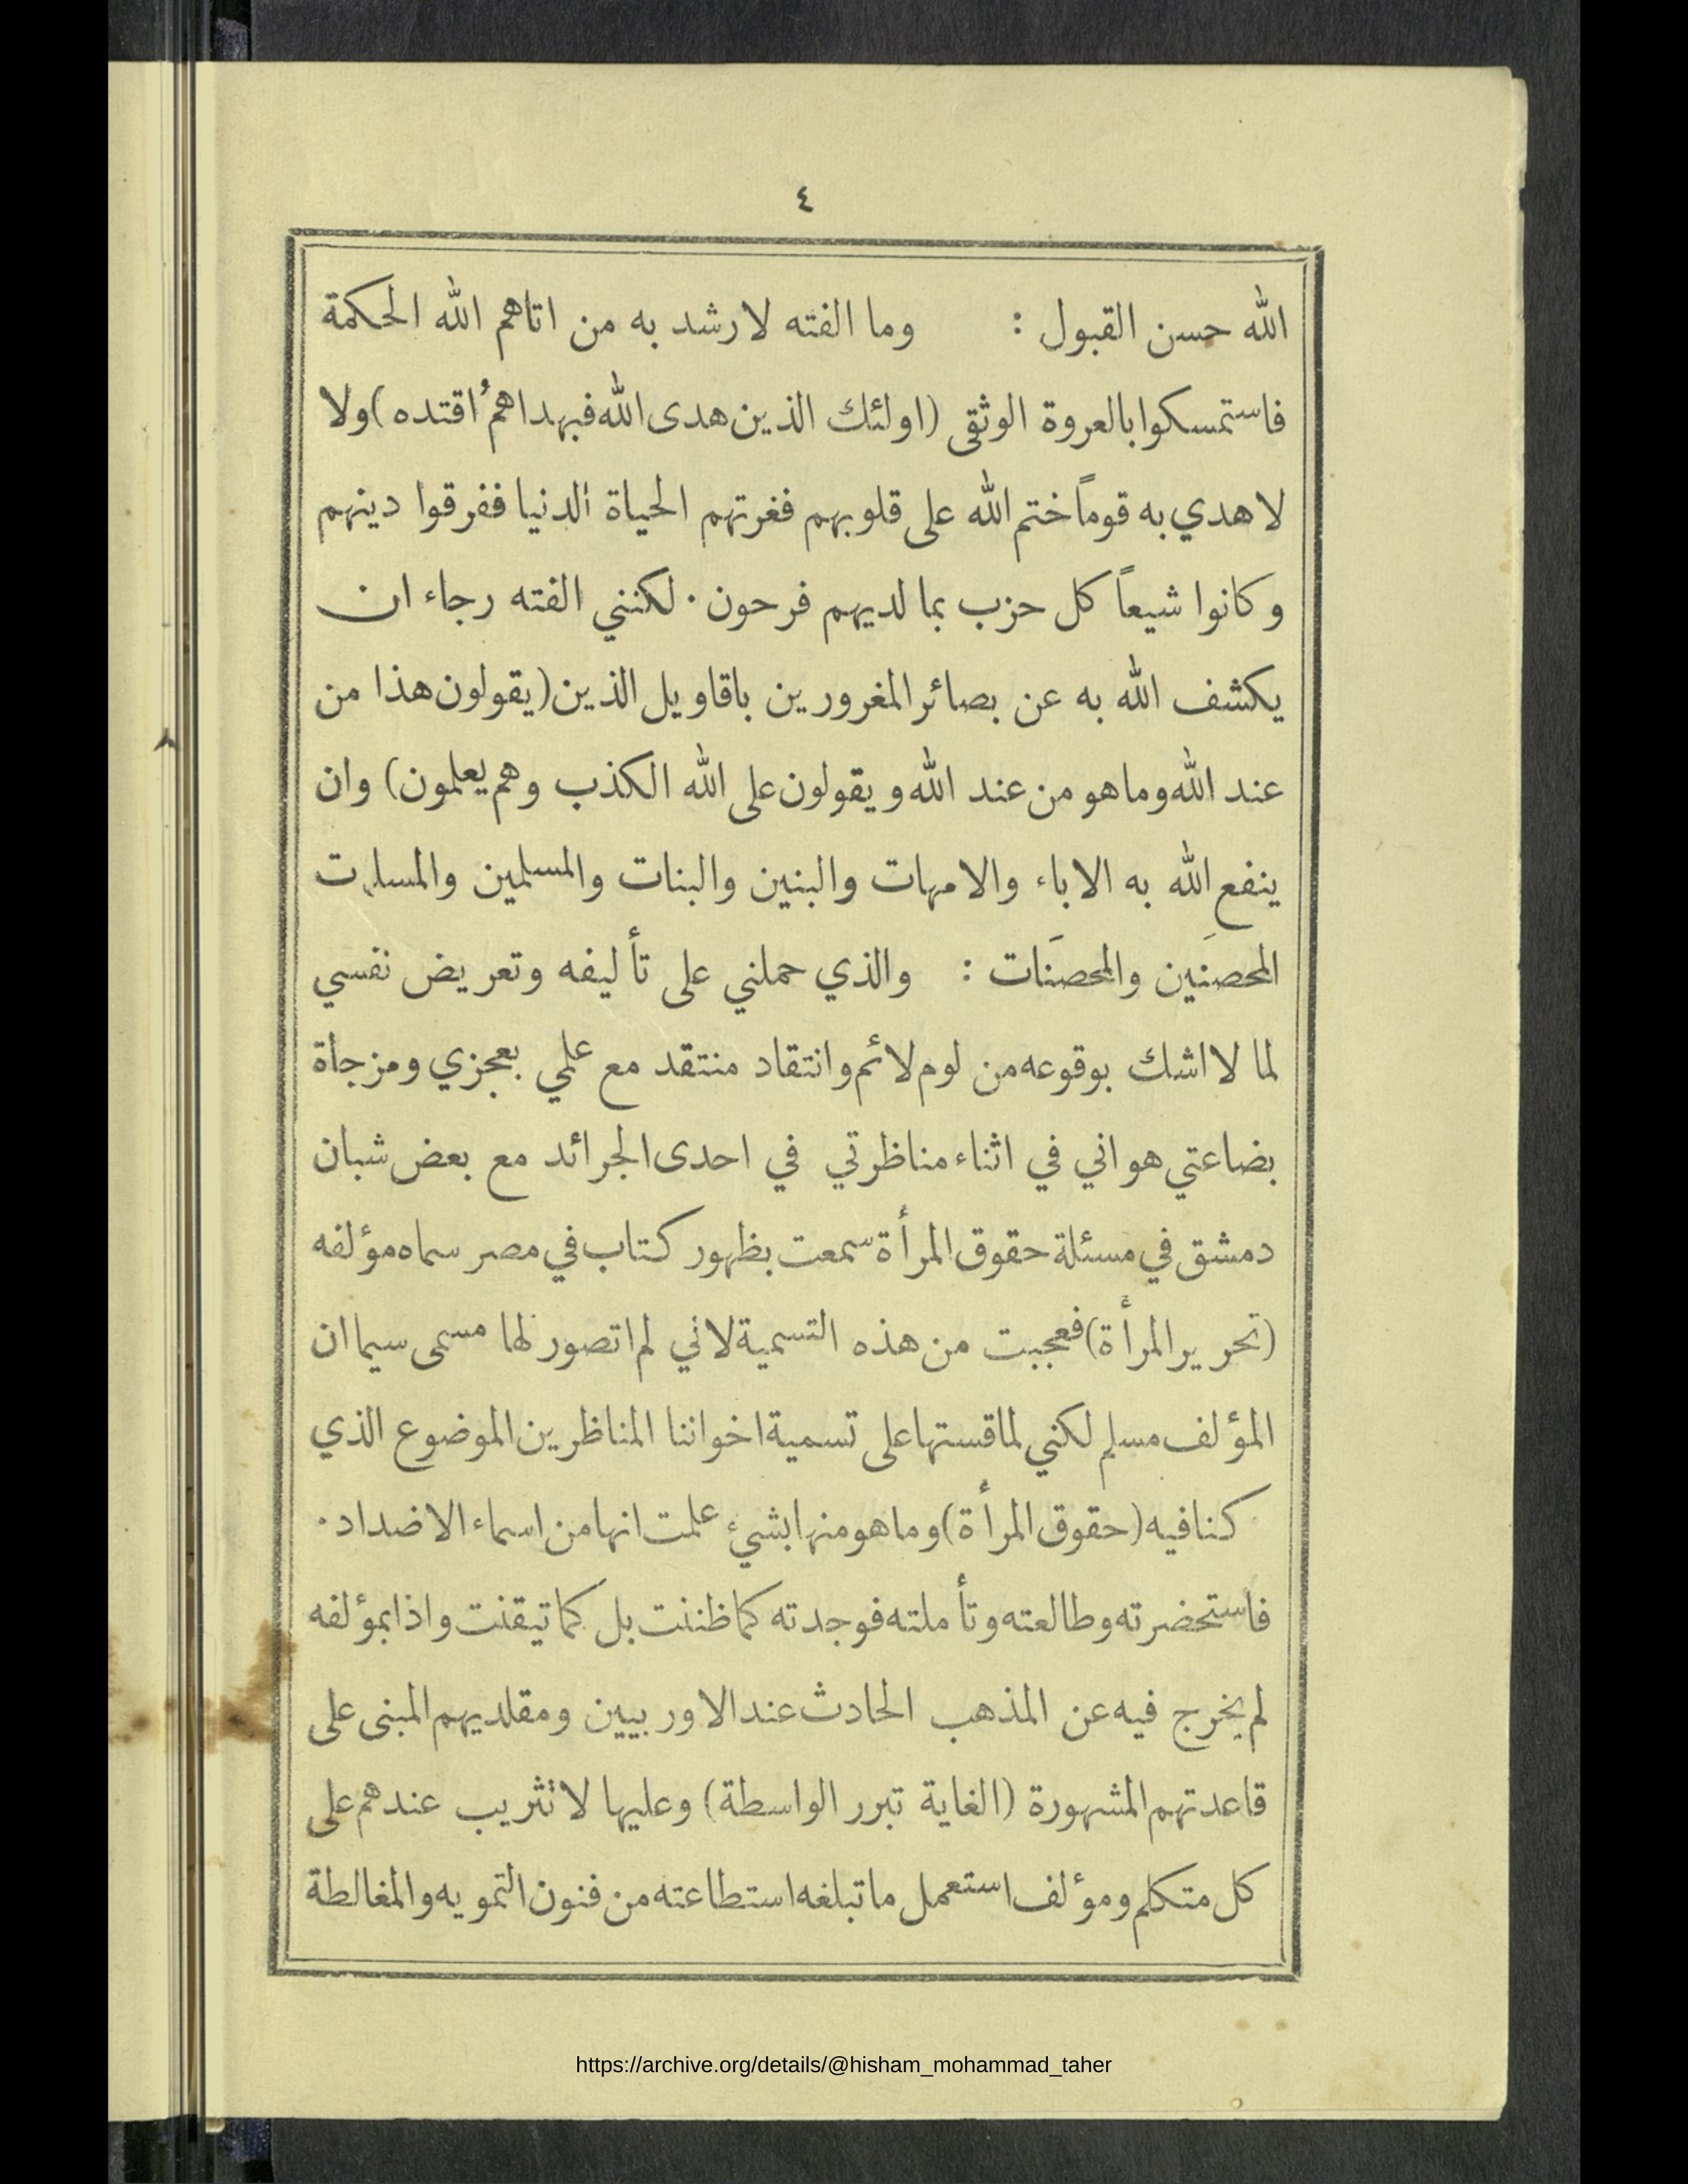 ٤
الله حسن القبول : وما الفته لارشد به من اتاهم الله الحكمة
فاستمسكوا بالعروة الوثقى (اولئك الذين هدى الله فبهداهمُ اقتده) ولا
لاهدي به قوماً ختم الله على قلوبهم فغرتهم الحياة الدنيا ففرقوا دينهم
وكانوا شيعاً كل حزب بما لديهم فرحون . لكنني الفته رجاء ان
يكشف الله به عن بصائر المغرورين باقاويل الذين (يقولون هذا من
عند الله وما هو من عند الله ويقولون على الله الكذب وهم يعلمون) وان
ينفع الله به الاباء والامهات والبنين والبنات والمسلمين والمسلمت
المحصَنين والمحصَنات : والذي حملني على تأليفه وتعريض نفسي
لما لا اشك بوقوعه من لوم لائم وانتقاد منتقد مع علمي بعجزي ومزجاة
بضاعتي هو اني في اثناء مناظرتي في احدى الجرائد مع بعض شبان
دمشق في مسئلة حقوق المرأة سمعت بظهور كتاب في مصر سماه مؤلفه
(تحرير المرأة) فعجبت من هذه التسمية لاني لم اتصور لها مسمى سيما ان
المؤلف مسلم لكني لما قستها على تسمية اخواننا المناظرين الموضوع الذي
كنا فيه (حقوق المرأة) وما هو منها بشيء علمت انها من اسماء الاضداد .
فاستحضرته وطالعته وتأملته فوجدته كما ظننت بل كما تيقنت واذا بمؤلفه
لم يخرج فيه عن المذهب الحادث عند الاوربيين ومقلديهم المبنى على
قاعدتهم المشهورة (الغاية تبرر الواسطة) وعليها لا تثريب عندهم على
كل متكلم ومؤلف استعمل ما تبلغه استطاعته من فنون التمويه والمغالطة
https://archive.org/details/@hisham_mohammad_taher